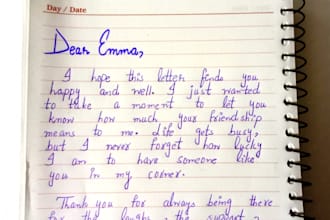 Day / Date
Dear Emma,
I hope this letter finds you
happy and well. I just wanted
to take a moment to let you
know how much your friendship
means to me. Life gets busy,
but I never forget how lucky
I am to have someone like
you in my corner.
Thank you for always being there
for the laughs, the support